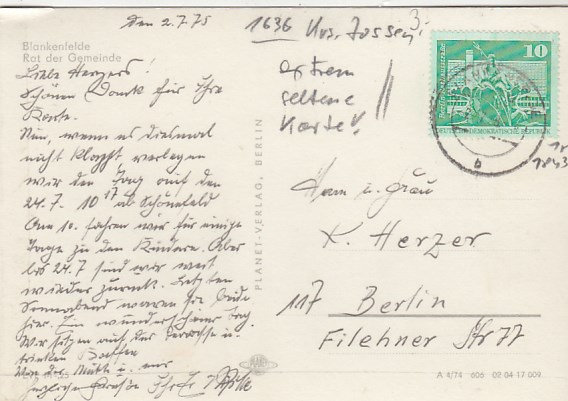 den 2.7.75
1636 Krs. Zossen
Blankenfelde
Rat der Gemeinde
extrem
seltene
Karte!!
Liebe Herzers!
Schönen Dank für Ihre
Karte.
Nun, wenn es diesmal
nicht klappt verlegen
wir den Tag auf den
24.7. 10 17 ab Schönefeld
Am 10. fahren wir für einige
Tage zu den Kindern. Aber
bis 24.7 sind wir weit
wieder zurück. Letzten
Sonnabend waren sie beide
hier. Ein wunderschöner Tag.
Wir saßen auf der Terrasse u.
trinken Kaffee
Von der Mutti u. mir
herzliche Grüße
10
Berlin, Neptunbrunnen
DEUTSCHE DEMOKRATISCHE REPUBLIK
b
1843
PLANET-VERLAG, BERLIN
Herrn u. Frau
K. Herzer
117 Berlin
Filehner Str 77
A 4/74 606 09 04 17 009